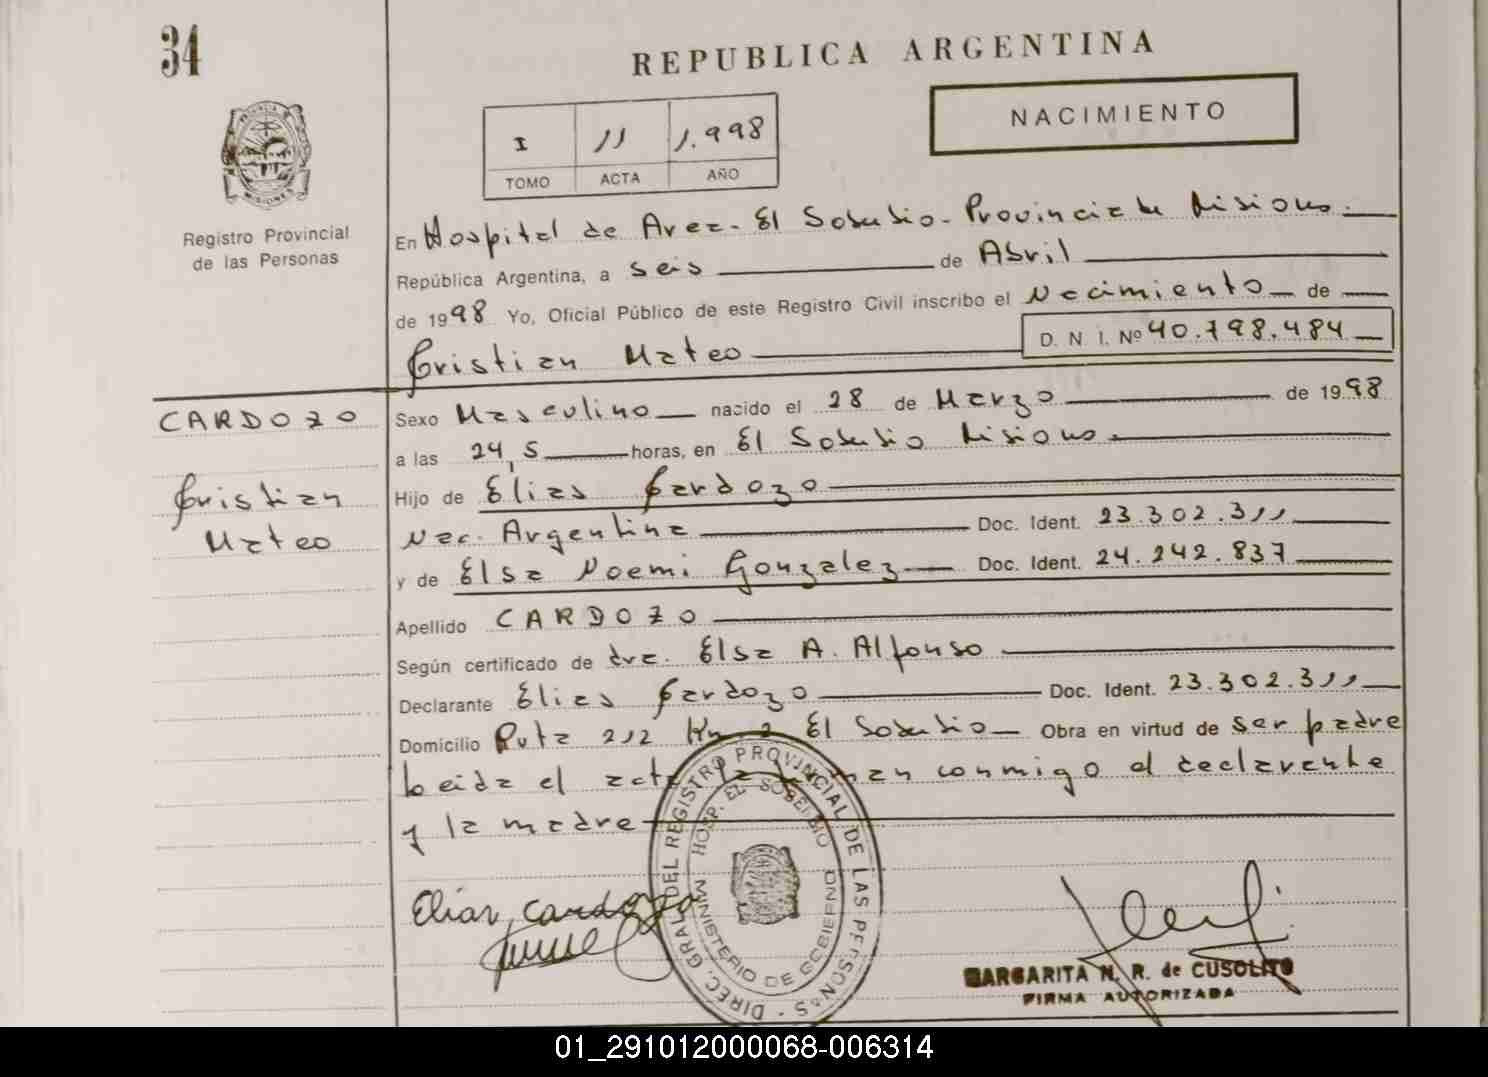 34
REPUBLICA ARGENTINA
NACIMIENTO
I 11 1.998
TOMO ACTA AÑO
PROVINCIA DE
MISIONES
Registro Provincial
de las Personas
En Hospital de Area - El Soberbio - Provincia de Misiones.
República Argentina, a seis de Abril
de 1998 Yo, Oficial Público de este Registro Civil inscribo el Nacimiento de
Cristian Mateo
D. N. I. Nº 40.798.484
CARDOZO
Cristian
Mateo
Sexo Masculino nacido el 28 de Marzo de 1998
a las 24,5 horas, en El Soberbio Misiones.
Hijo de Elias Cardozo
Nac. Argentina Doc. Ident. 23.302.311
y de Elsa Noemi Gonzalez Doc. Ident. 24.242.837
Apellido CARDOZO
Según certificado de dra. Elsa A. Alfonso
Declarante Elias Cardozo Doc. Ident. 23.302.311
Domicilio Ruta 212 Km. 2 El Soberbio Obra en virtud de ser padre
Leida el acta la firman conmigo el declarante
y la madre
DIREC. GRAL. DEL REGISTRO PROVINCIAL DE LAS PERSONAS
HOSP. EL SOBERBIO
MINISTERIO DE GOBIERNO
Elias, Cardozo
MARGARITA N. R. de CUSOLITO
FIRMA AUTORIZADA
01_291012000068-006314